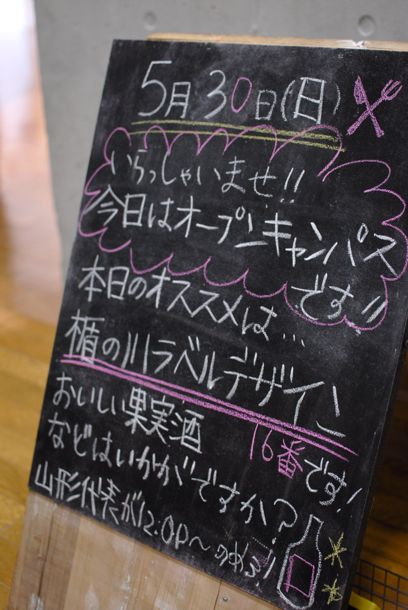 5月30日(日)
いらっしゃいませ!!
今日はオープンキャンパス
です!!
本日のオススメは…
楯の川ラベルデザイン
16番です!
おいしい果実酒
などはいかがですか?
山形代表が12:00~のめる!